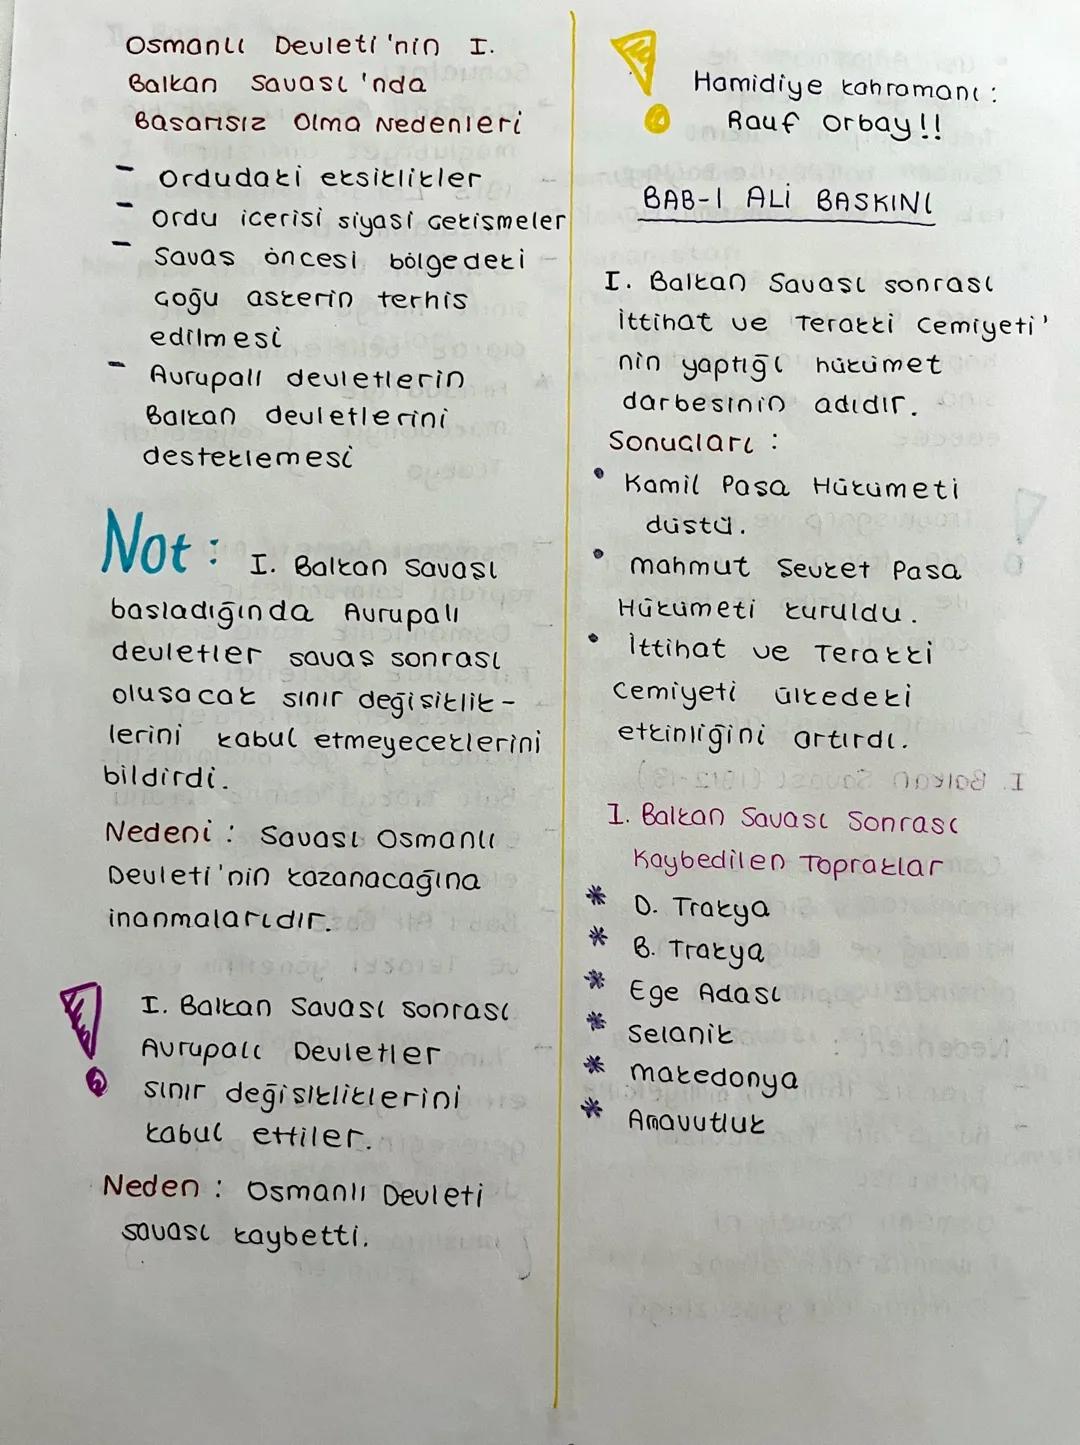 Osmanlı Devleti'nin I.
Balkan Savası'nda
Basarısız Olma Nedenleri
- Ordudaki eksiklikler
- Ordu icerisi siyasi cekismeler
- Savas öncesi bölgedeki
çoğu askerin terhis
edilmesi
- Avrupalı devletlerin
Balkan devletlerini
desteklemesi
Not: I. Balkan Savası
basladığında Avrupalı
devletler savaş sonrası
olusacak sınır değisiklik-
lerini kabul etmeyeceklerini
bildirdi.
Nedeni: Savası Osmanlı
Devleti'nin kazanacağına
inanmalarıdır.
! I. Balkan Savası sonrası
Avrupalı Devletler
sınır değisikliklerini
kabul ettiler.
Neden: Osmanlı Devleti
savası kaybetti.
! Hamidiye kahramanı:
Rauf Orbay!!
BAB-I ALİ BASKINI
I. Balkan Savası sonrası
İttihat ve Terakki Cemiyeti'
nin yaptığı hükümet
darbesinin adıdır.
Sonucları:
• Kamil Pasa Hükümeti
düstü.
• Mahmut Sevket Pasa
Hükümeti kuruldu.
• İttihat ve Terakki
Cemiyeti ülkedeki
etkinliğini artırdı.
I. Balkan Savası Sonrası
Kaybedilen Topraklar
* D. Trakya
* B. Trakya
* Ege Adası
* Selanik
* Makedonya
* Arnavutluk